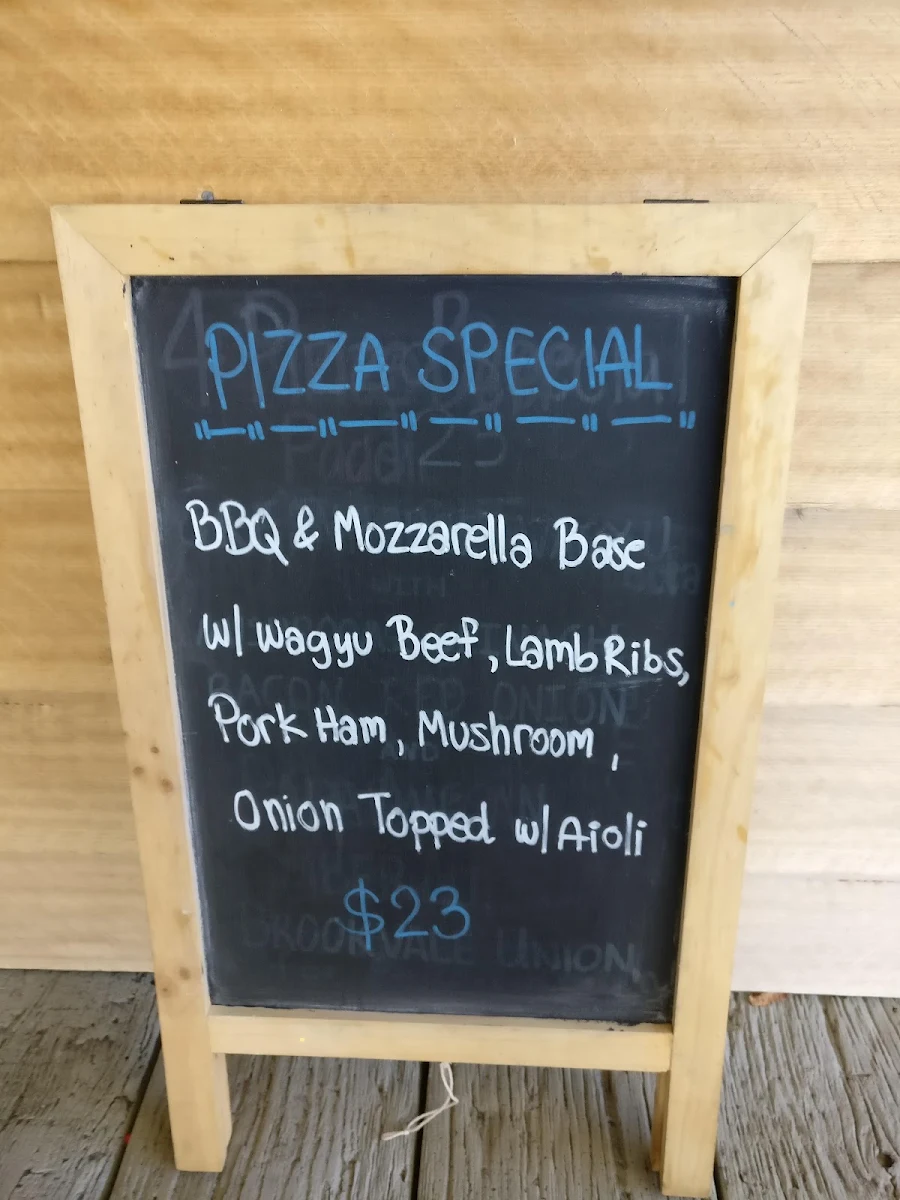 PIZZA SPECIAL
BBQ & Mozzarella Base
w/ wagyu Beef, Lamb Ribs,
Pork Ham, Mushroom,
Onion Topped w/ Aioli
$23